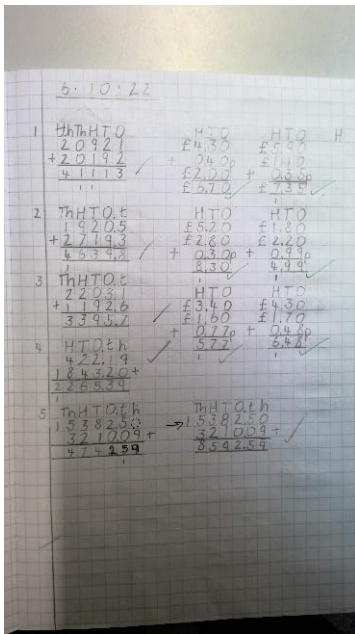 6.10.22
1
TThThHTO
20921
+20192
41113
HTO
£4.30
+ 0.40p
£2.00
£6.70
HTO
£5.90
£1.10
+ 0.35p
£7.35
H
2
ThHTO.t
19205
+27193
46398
HTO
£5.20
£2.80
+0.30p
8.30
HTO
£1.80
£2.20
+0.99p
4.99
3
ThHTO.t
22031
+11926
33957
HTO
£3.40
£1.60
+0.77p
5.77
HTO
£4.30
£1.70
+0.48p
6.48
4
HTO.th
422.19
1843.20+
2265.39
5
ThHTO.th
538250
321009+
474259
→
ThHTO.th
538250
321009+
859259